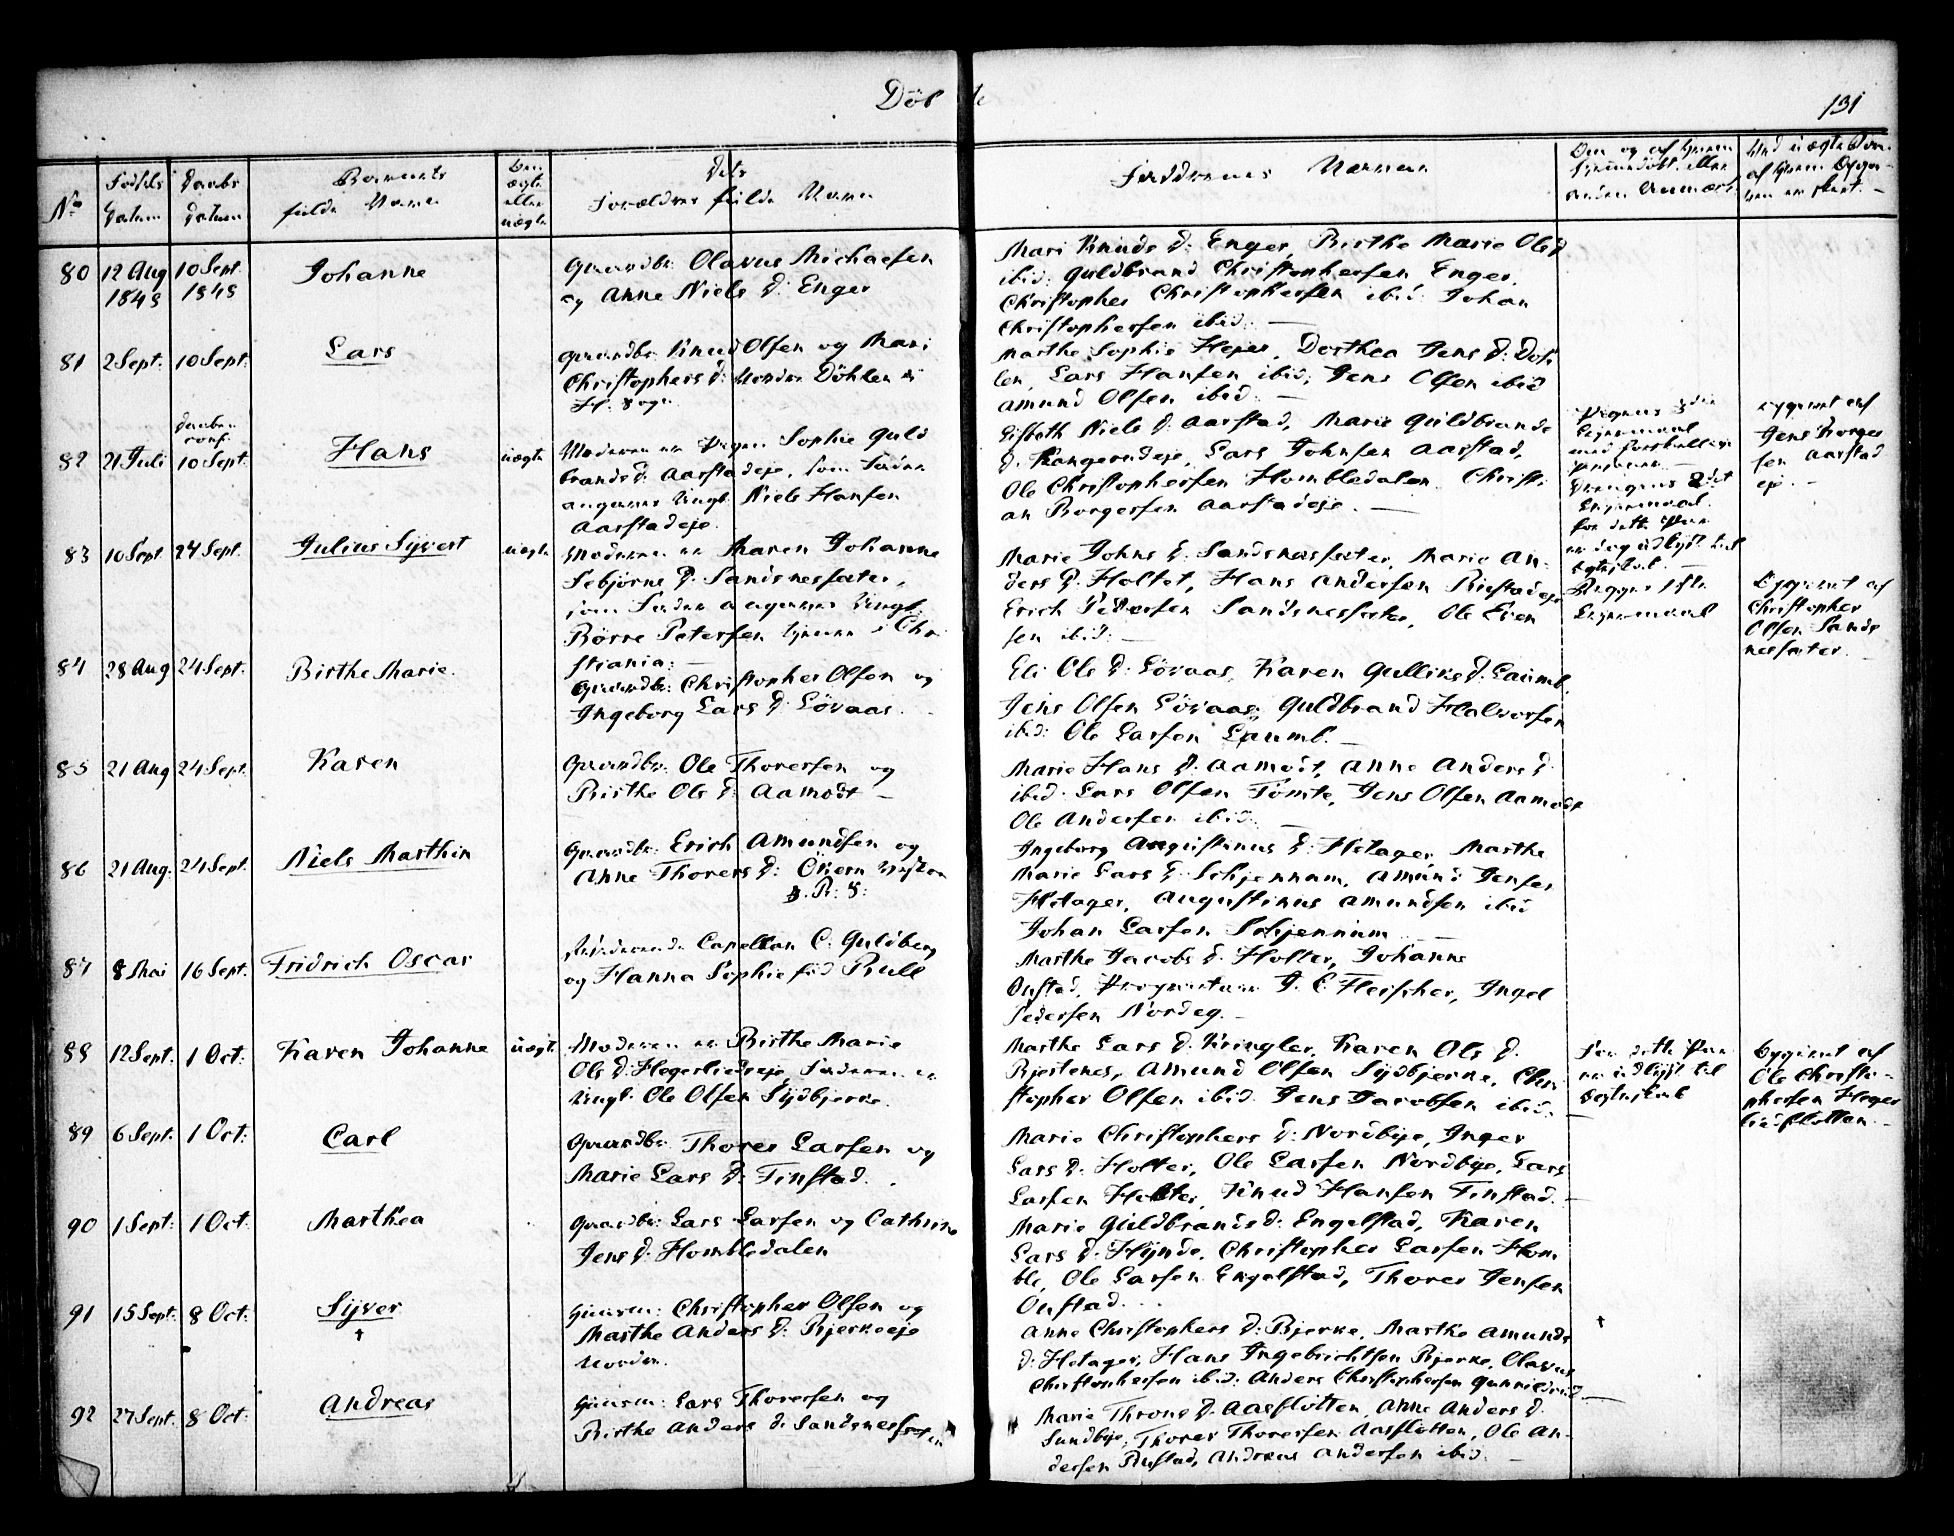 Döb te
131
No
Fødsels Datum
Daabs Datum
Barnets fulde Navn
Om ægte eller uægte
Dets Forældres fulde Navn
Faddernes Navne
80 12 Aug 1848 10 Sept. 1848 Johanne
Gaardbr: Olavus Michaelsen
og Anne Niels D: Enger
Mari Knuds D: Enger, Birthe Marie Ols D
ibid: Guldbrand Christophersen Enger,
Christopher Christophersen ibid: Johan
Christophersen ibid: —
81 2 Sept. 10 Sept. Lars
Gaardbr: Knud Olsen og Mari
Christophers D: Nordre Döhlen i
Marthe Sophie Hejer, Dorthea Jens D: Döh
len, Lars Hansen ibid; Jens Olsen ibid
Amund Olsen ibid. —
82 21 Juli Daaben conf. 10 Sept. Hans uægte
Moderen er Pigen Sophie Guld
brands D: Aarstadeje, som Fader
angives Ungk: Niels Hansen
Aarstadeje.
Lisbeth Niels D: Aarstad, Marie Guldbrands
D: Kangerudeje, Lars Johnsen Aarstad,
Ole Christophersen Hombledalen Christi
an Borgersen Aarstadeje. —
Pigens 3die
Leiermaal
med forskellige
Personer. —
Drengens 2det
Leiermaal.
For dette Par
er dog udlyst til
Egteskab. —
Opgivet af
Jens Borger
sen Aarstad
eje. —
83 10 Sept. 24 Sept. Julius Syvert uægte
Moderen er Maren Johanne
Sebjörns D: Sandsnessæter,
som Fader angives Ungk:
Börre Petersen hjemme i Chri
stiania: —
Marie Johns D: Sandsnessæter, Marie An-
ders D: Holtet, Hans Andersen Rustadeje
Erich Pedersen Sandsnessæter, Ole Even
sen ibid: —
Begges 1ste
Leiermaal
Opgivet af
Christopher
Olsen Sands
nessæter.
84 28 Aug 24 Sept. Birthe Marie.
Gaardbr: Christopher Olsen og
Ingeborg Lars D: Lövaas. —
Eli Ole D: Lövaas, Karen Gulliks D. Laumb,
Jens Olsen Lövaas, Guldbrand Halvorsen
ibid: Ole Larsen Laumb. —
85 21 Aug 24 Sept. Karen
Gaardbr: Ole Thoresen og
Birthe Ols D: Aamodt —
Marie Hans D: Aamodt, Anne Anders D
ibid: Lars Olsen Tömte, Jens Olsen Aamodt
Ole Andersen ibid. —
86 21 Aug. 24 Sept. Niels Marthin
Gaardbr: Erich Amundsen og
Anne Thorers D: Ökern
Ingeborg Augustinus D: Hetager, Marthe
Marie Lars D: Schjennum, Amund Jensen
Hetager, Augustinus Amundsen ibid
Johan Larsen Schjennum —
87 8 Mai 16 Sept. Fridrich Oscar
Capellan C. Guldberg
og Hanna Sophie fød Bull
Marthe Jacobs D: Holter, Johanne
Onstad, Proprietær J. C. Fleischer, Ingel
Pedersen Nordeg. —
88 12 Sept. 1 Oct: Karen Johanne uægte
Moderen er Birthe Marie
Ols D: Hegerliedseje Faderen er
Ungk: Ole Olsen Sydbjerke.
Marthe Lars D. Kringler, Karen Ols D.
Bjertenes, Amund Olsen Sydbjerke, Chri
stopher Olsen ibid. Jens Jacobsen ibid.
For dette Par
er udlyst til
Egteskab
Opgivet af
Ole Christo-
phersen Heger
liedslotten.
89 6 Sept. 1 Oct: Carl
Gaardbr: Thorer Larsen og
Marie Lars D. Finstad.
Marie Christophers D: Nordbye, Inger
Lars D. Holter, Ole Larsen Nordbye, Lars
Larsen Holter, Knud Hansen Finstad. —
90 1 Sept: 1 Oct: Marthea
Gaardbr: Lars Larsen og Cathrine
Jens D: Hombledalen
Marie Guldbrands D: Engelstad, Karen
Lars D: Hynde, Christopher Larsen Hom
ble, Ole Larsen Engelstad, Thorer Jensen
Onstad. . .
91 15 Sept. 8 Oct: Syver †
Huusm: Christopher Olsen og
Marthe Anders D: Bjerkeeje
Nordre.
Anne Christophers D: Bjerke, Marthe Amunds
D: Hetager, Hans Ingebrichtsen Bjerke, Olavus
Christophersen ibid: Anders Christophersen Gunnildrud. —
†
92 27 Sept. 8 Oct: Andreas
Huusm: Lars Thoresen og
Birthe Anders D: Sandsnessæter
Marie Throns D. Aasslotten, Anne Anders D.
Sundbye, Thorer Thoresen Aasslotten, Ole An-
dersen Rustad, Andreas Andersen ibid. —